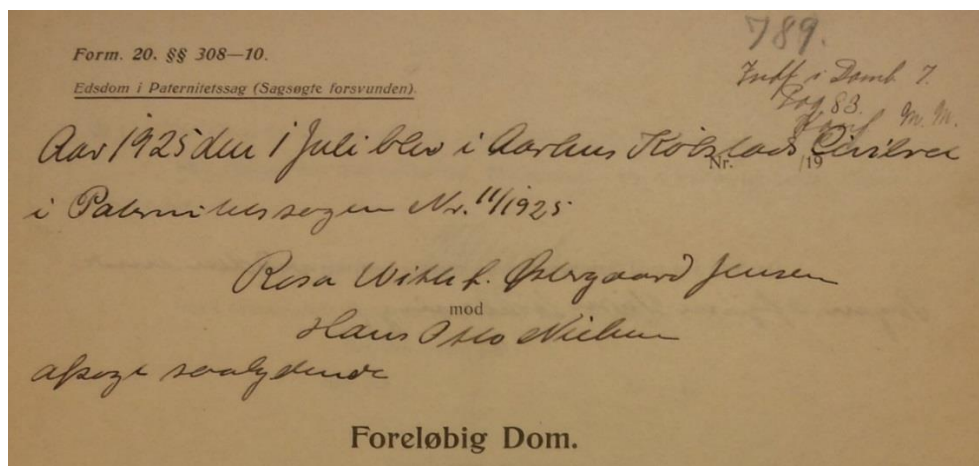 789.
Form. 20. §§ 308—10.
Indf i Domb 7.
Edsdom i Paternitetssag (Sagsøgte forsvunden).
Pag 83.
M. M.
Aar 1925 den 1 Juli blev i Aarhus Købstads Civilret
Nr. /19
i Paternitetssagen Nr. 11/1925
Rosa Witte f. Østergaard Jensen
mod
Hans Otto Nielsen
afsagt saalydende
Foreløbig Dom.